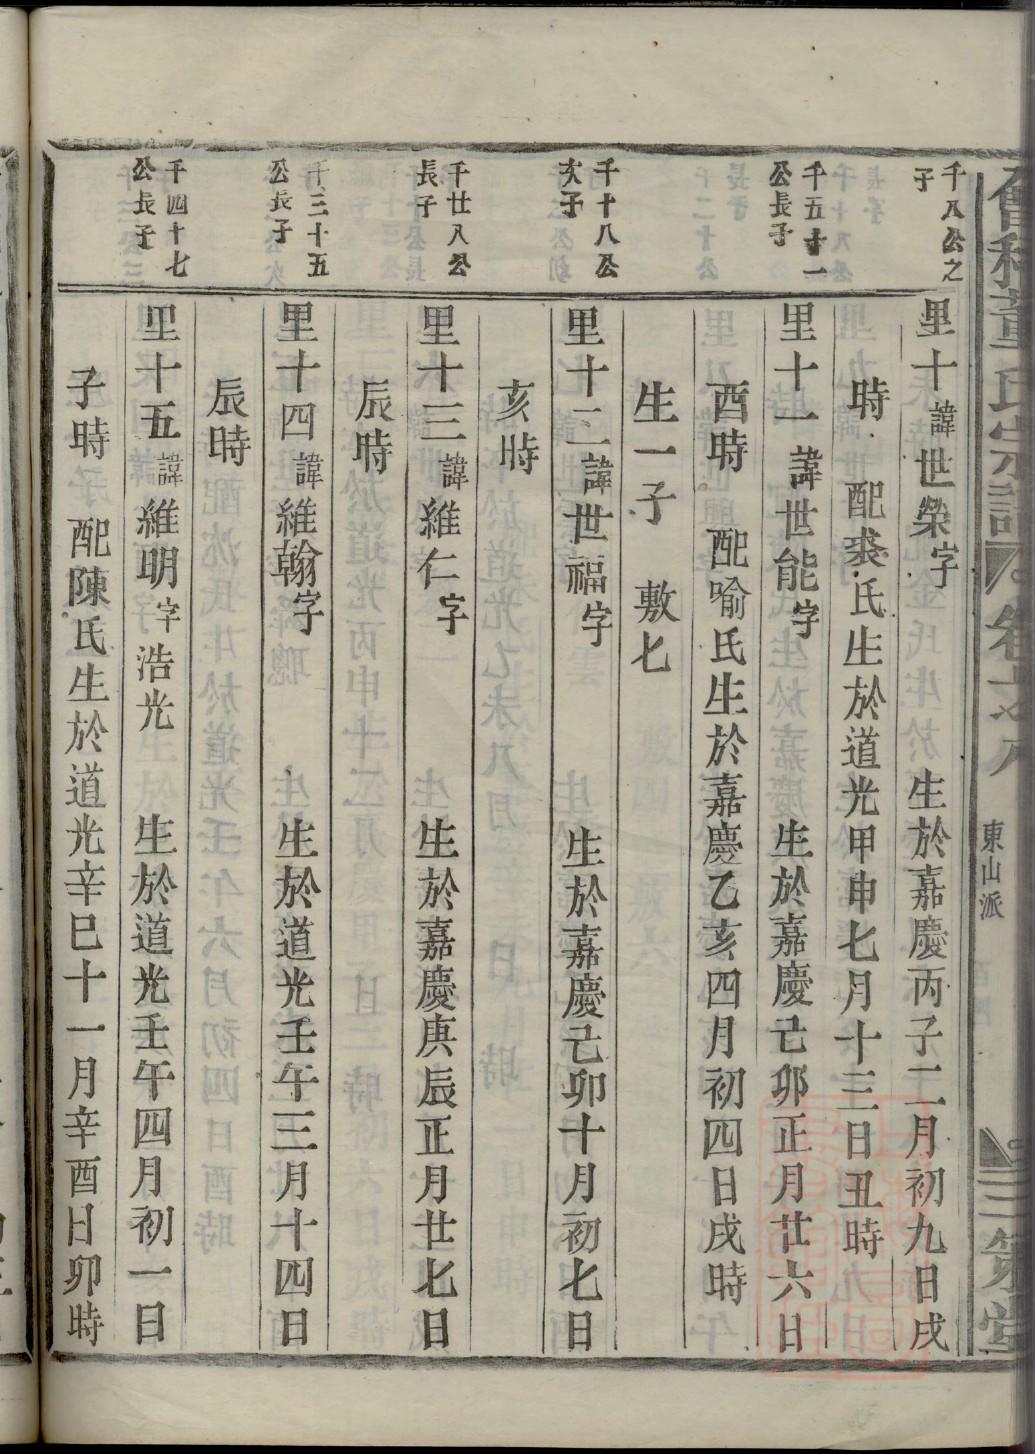 會稽董氏宗譜 卷 東山派 三策堂
千八公之
子
里十諱世榮字 生於嘉慶丙子二月初九日戌
時 配裘氏生於道光甲申七月十三日丑時
千五十一
公長子
里十一諱世能字 生於嘉慶己卯正月廿六日
酉時 配喻氏生於嘉慶乙亥四月初四日戌時
生一子 敷七
千十八公
次子
里十二諱世福字 生於嘉慶己卯十月初七日
亥時
千廿八公
長子
里十三諱維仁字 生於嘉慶庚辰正月廿七日
辰時
千三十五
公長子
里十四諱維翰字 生於道光壬午三月十四日
辰時
千四十七
公長子
里十五諱維明字浩光 生於道光壬午四月初一日
子時 配陳氏生於道光辛巳十一月辛酉日卯時